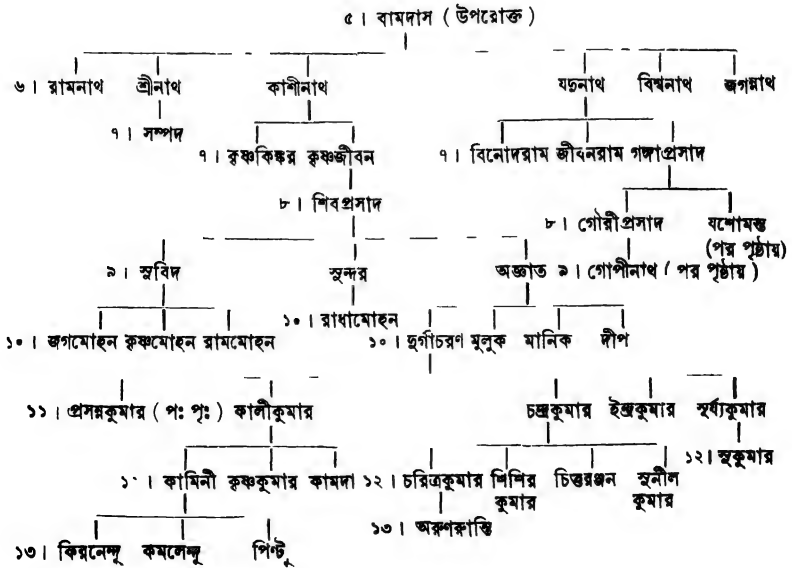 ৫। বামদাস ( উপরোক্ত )
৬। রামনাথ শ্রীনাথ কাশীনাথ যদুনাথ বিশ্বনাথ জগন্নাথ
৭। সম্পদ
৭। কৃষ্ণকিঙ্কর কৃষ্ণজীবন ৭। বিনোদরাম জীবনরাম গঙ্গাপ্রসাদ
৮। শিবপ্রসাদ ৮। গৌরীপ্রসাদ যশোমন্ত
(পর পৃষ্ঠায়)
৯। সুবিদ সুন্দর অজ্ঞাত ৯। গোপীনাথ ( পর পৃষ্ঠায় )
১০। রাধামোহন
১০। জগমোহন কৃষ্ণমোহন রামমোহন ১০। দুর্গাচরণ মুলুক মানিক দীপ
১১। প্রসন্নকুমার ( পঃ পৃঃ ) কালীকুমার চন্দ্রকুমার ইন্দ্রকুমার সূর্য্যকুমার
১২। সুকুমার
১২। কামিনী কৃষ্ণকুমার কামদা ১২। চরিত্রকুমার শিশির চিত্তরঞ্জন সুনীল
কুমার কুমার
১৩। অরুণকান্তি
১৩। কিরনেন্দু কমলেন্দু পিন্টু